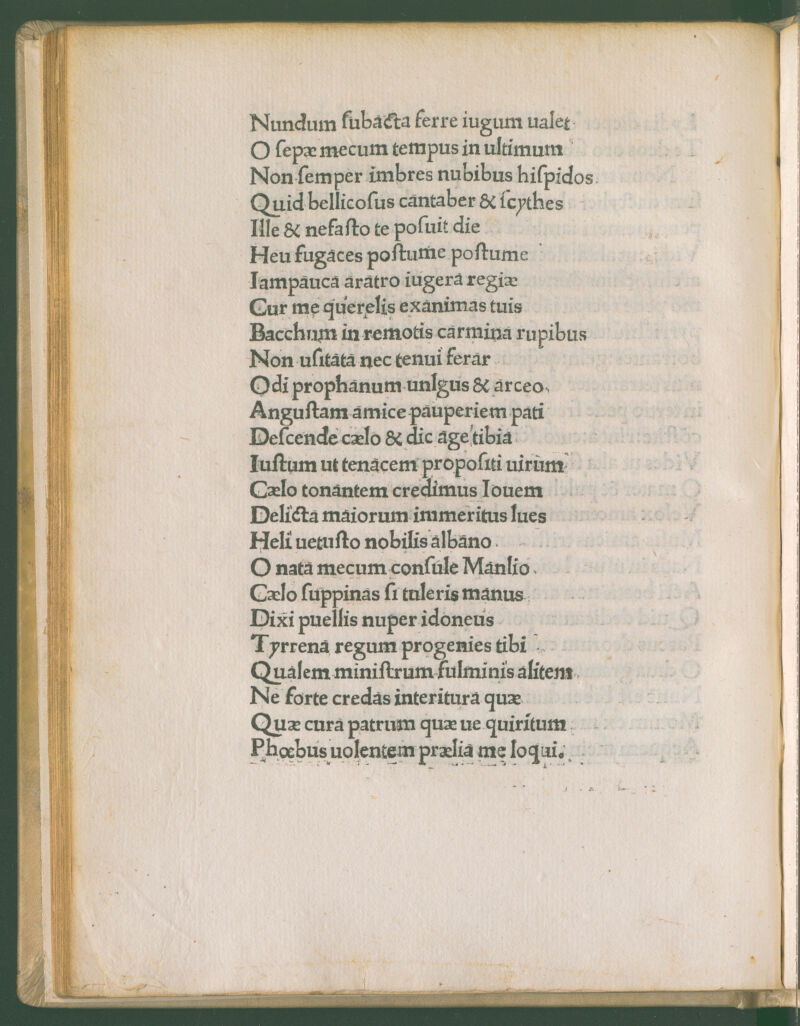 Nundum ſubacta ferre iugum ualet
O ſepæ mecum tempus in ultimum
Non ſemper imbres nubibus hiſpidos.
Quid bellicoſus cantaber & ſcythes
Ille & nefaſto te poſuit die
Heu fugaces poſtume poſtume
Iampauca aratro iugera regiæ
Cur me querelis exanimas tuis
Bacchum in remotis carmina rupibus
Non uſitata nec tenui ferar
Odi prophanum unlgus & arceo.
Anguſtam amice pauperiem pati
Deſcende cælo & dic age tibia
Iuſtum ut tenacem propoſiti uirum
Cælo tonantem credimus Iouem
Delicta maiorum immeritus lues
Heli uetuſto nobilis albano.
O nata mecum conſule Manlio.
Cælo ſuppinas ſi tuleris manus.
Dixi puellis nuper idoneus
Tyrrena regum progenies tibi
Qualem miniſtrum fulminis alitem.
Ne forte credas interitura quæ
Quæ cura patrum quæ ue quiritum
Phœbus uolentem prælia me loqui.